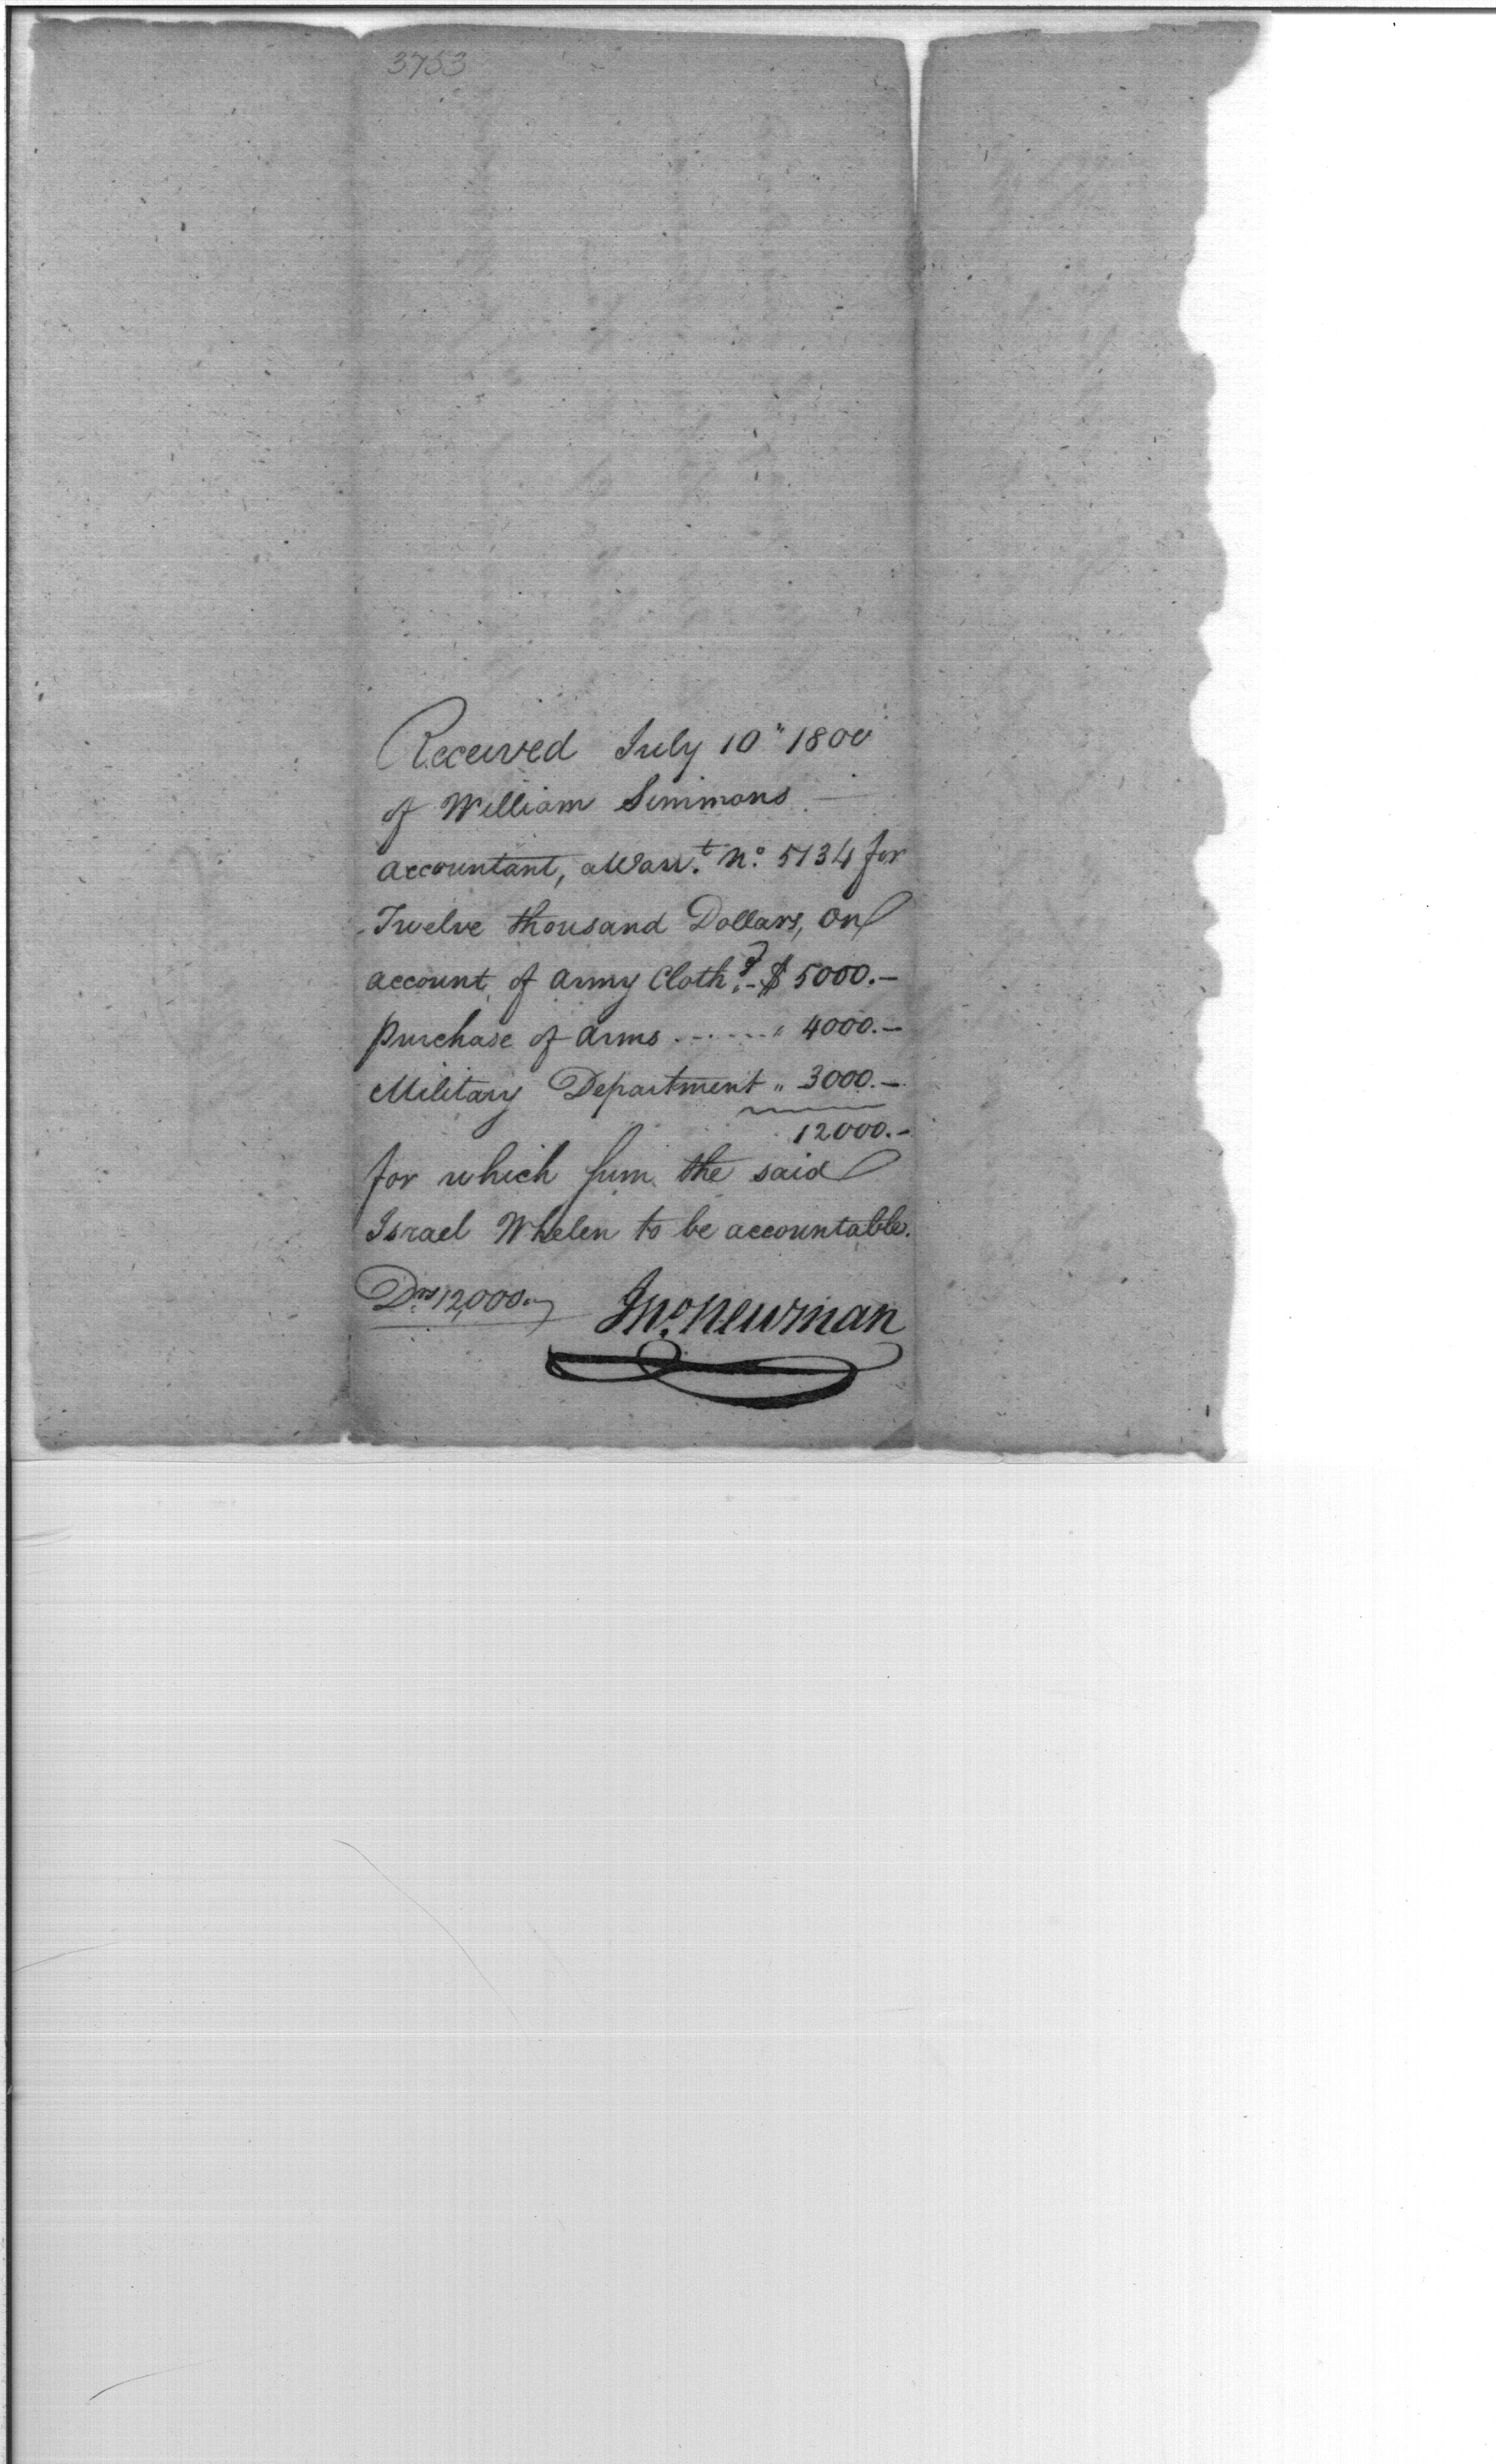 3753
Received July 10" 1800
of William Simmons
accountant, a Warr.t No. 5134 for
Twelve thousand Dollars, on
account of Army Cloth.g - $ 5000.-
purchase of arms ...... " 4000.-
Military Department " 3000.-
12000.-
for which sum the said
Israel Whelen to be accountable.
Drs 12,000..
Jno. Newman